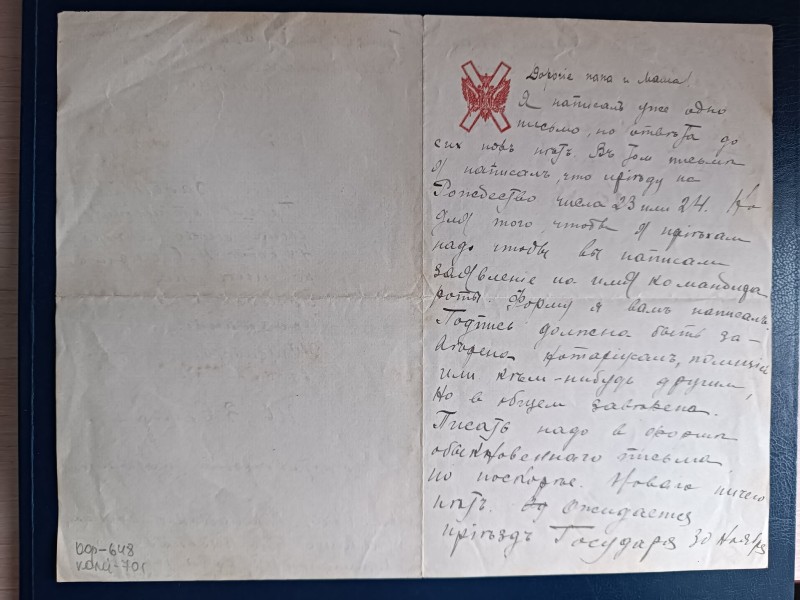 Дорогіе папа и Маша!
Я написалъ уже одно
письмо, но отвѣта до
сихъ поръ нѣтъ. Въ том письмѣ
я написалъ, что пріѣду на
Рождество числа 23 или 24. Но
для того, чтобы я пріѣхал
надо чтобы вы написали
заявленіе на имя командира
роты. Форму я вамъ написалъ.
Подпись должна быть за-
верена нотаріусамъ, полиціей
или кѣм-нибудь другим,
но в общем заверена.
Писать надо в форме
обыкновеннаго письма
но поскорѣе. Новаго ничего
нѣтъ. Ожидается
пріѣздъ Государя 30 ноября
вф-648